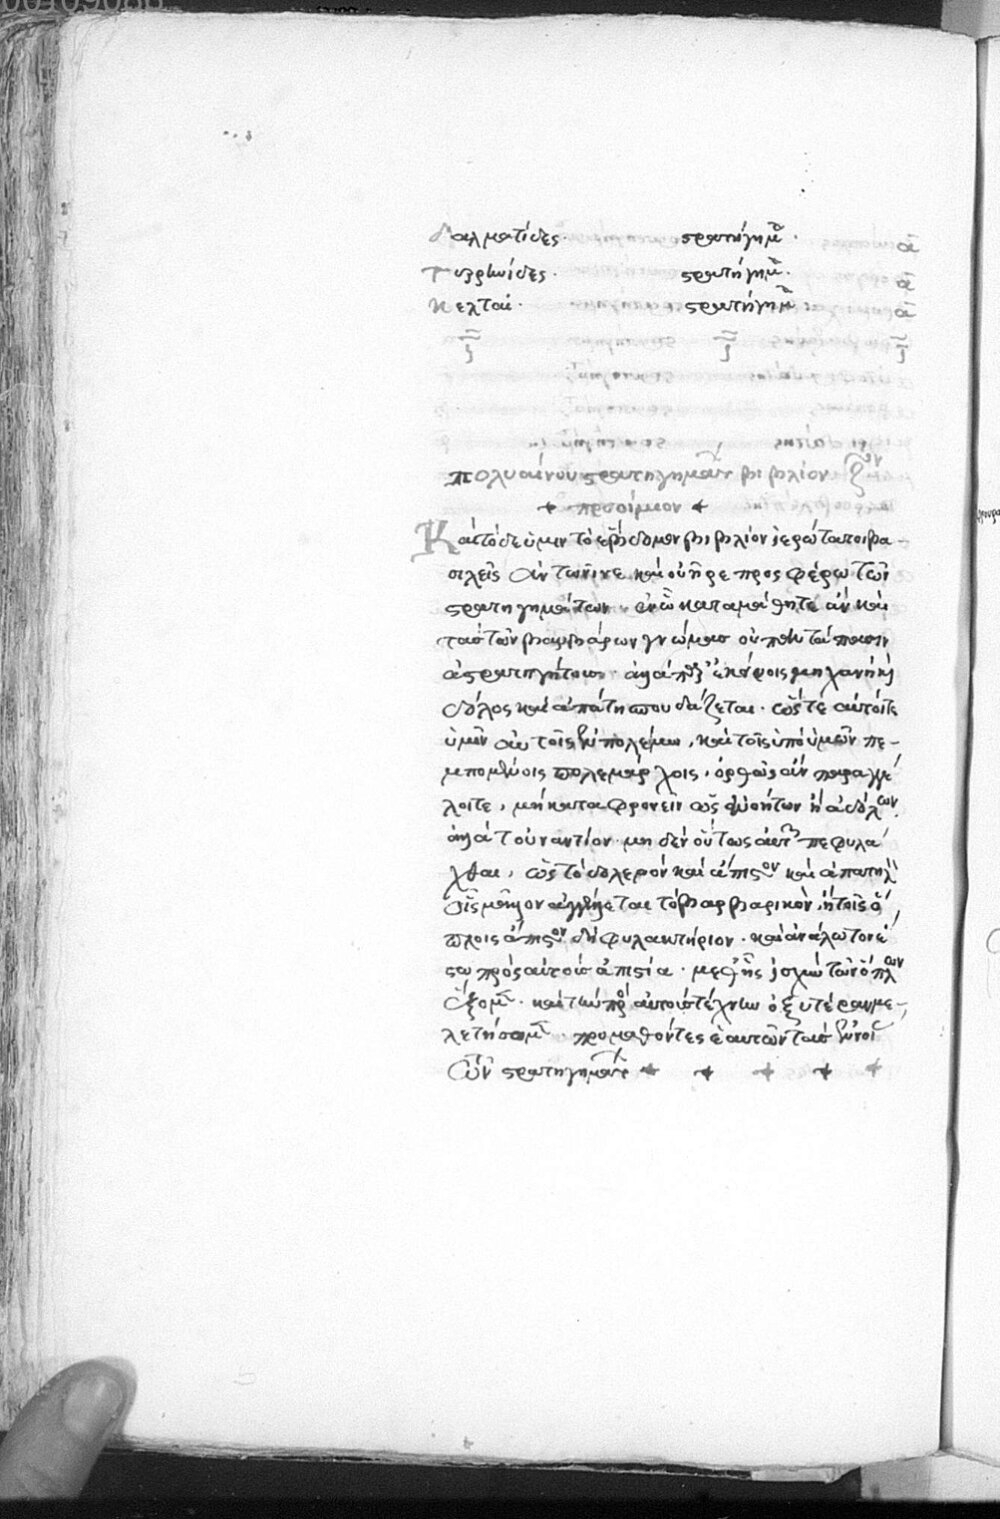 δαλματίδες. στρατήγημα. α
τυρρηνίδες. στρατήγημα. α
κελταί. στρατήγημα α
πολυαίνου στρατηγημάτων βιβλίον ζον
+ προοίμιον +
Καὶ τόδε ὑμῖν τὸ ἕβδομον βιβλίον ἱερώτατοι βα-
σιλεῖς ἀντωνῖνε καὶ οὐῆρε προσφέρω τῶν
στρατηγημάτων. ἐν ᾧ καταμάθητε ἂν καὶ
τὰς τῶν βαρβάρων γνώμας οὐ πάνυ τάπασιν
ἀστρατηγήτους. ἀλλὰ παρ' ἐκείνοις μηχανὴ καὶ
δόλος καὶ ἀπάτη σπουδάζεται. ὥστε αὐτοί τε
ὑμῖν αὐτοῖς ἐν πολέμω, καὶ τοῖς ὑπὸ ὑμῶν πε-
μπομένοις πολεμάρχοις, ὀρθῶς ἂν παραγγέ
λοιτε, μὴ καταφρονεῖν ὡς ἀνοήτων ἢ ἀδόλων.
ἀλλὰ τοὐναντίον. μηδὲν οὕτως αὐτοὺς πεφυλά
χθαι, ὡς τὸ δολερὸν καὶ ἄπιστον καὶ ἀπατηλὸν
οἷς μᾶλλον ἀγγέλλεται τὸ βαρβαρικὸν, ἢ τοῖς ὅ
πλοις ἄπιστον δὴ φυλακτήριον. καὶ ἀνάλωτον ἔ
στω πρὸς αὐτοὺς ἀπιστία. μεθ' ἧς ἰσχὺν τῶν ὅπλων
ἕξομεν. καὶ τὴν πρὸς αὐτοὺς τέχνην ὀξυτέραν με-
λετήσομεν. προμαθόντες ἑαυτῶν τὰς ἐννοί
ῶν στρατηγημάτων + + + + +